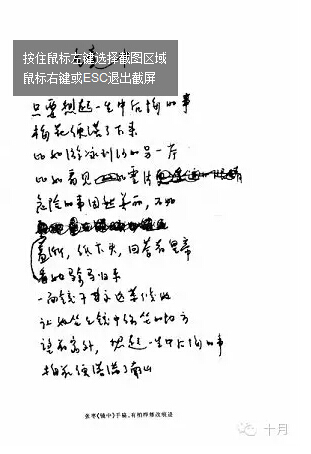 按住鼠标左键选择截图区域
鼠标右键或ESC退出截屏
只要想起一生中后悔的事
梅花便落了下来
比如游泳到河的另一岸
比如看见
危险的事固然美丽，不如
羞惭，低下头，回答着皇帝
看她骑马归来
一面镜子永远等候她
让她坐到镜中常坐的地方
望着窗外，想起一生中后悔的事
梅花便落满了南山
张枣《镜中》手稿，有柏桦修改痕迹
十月